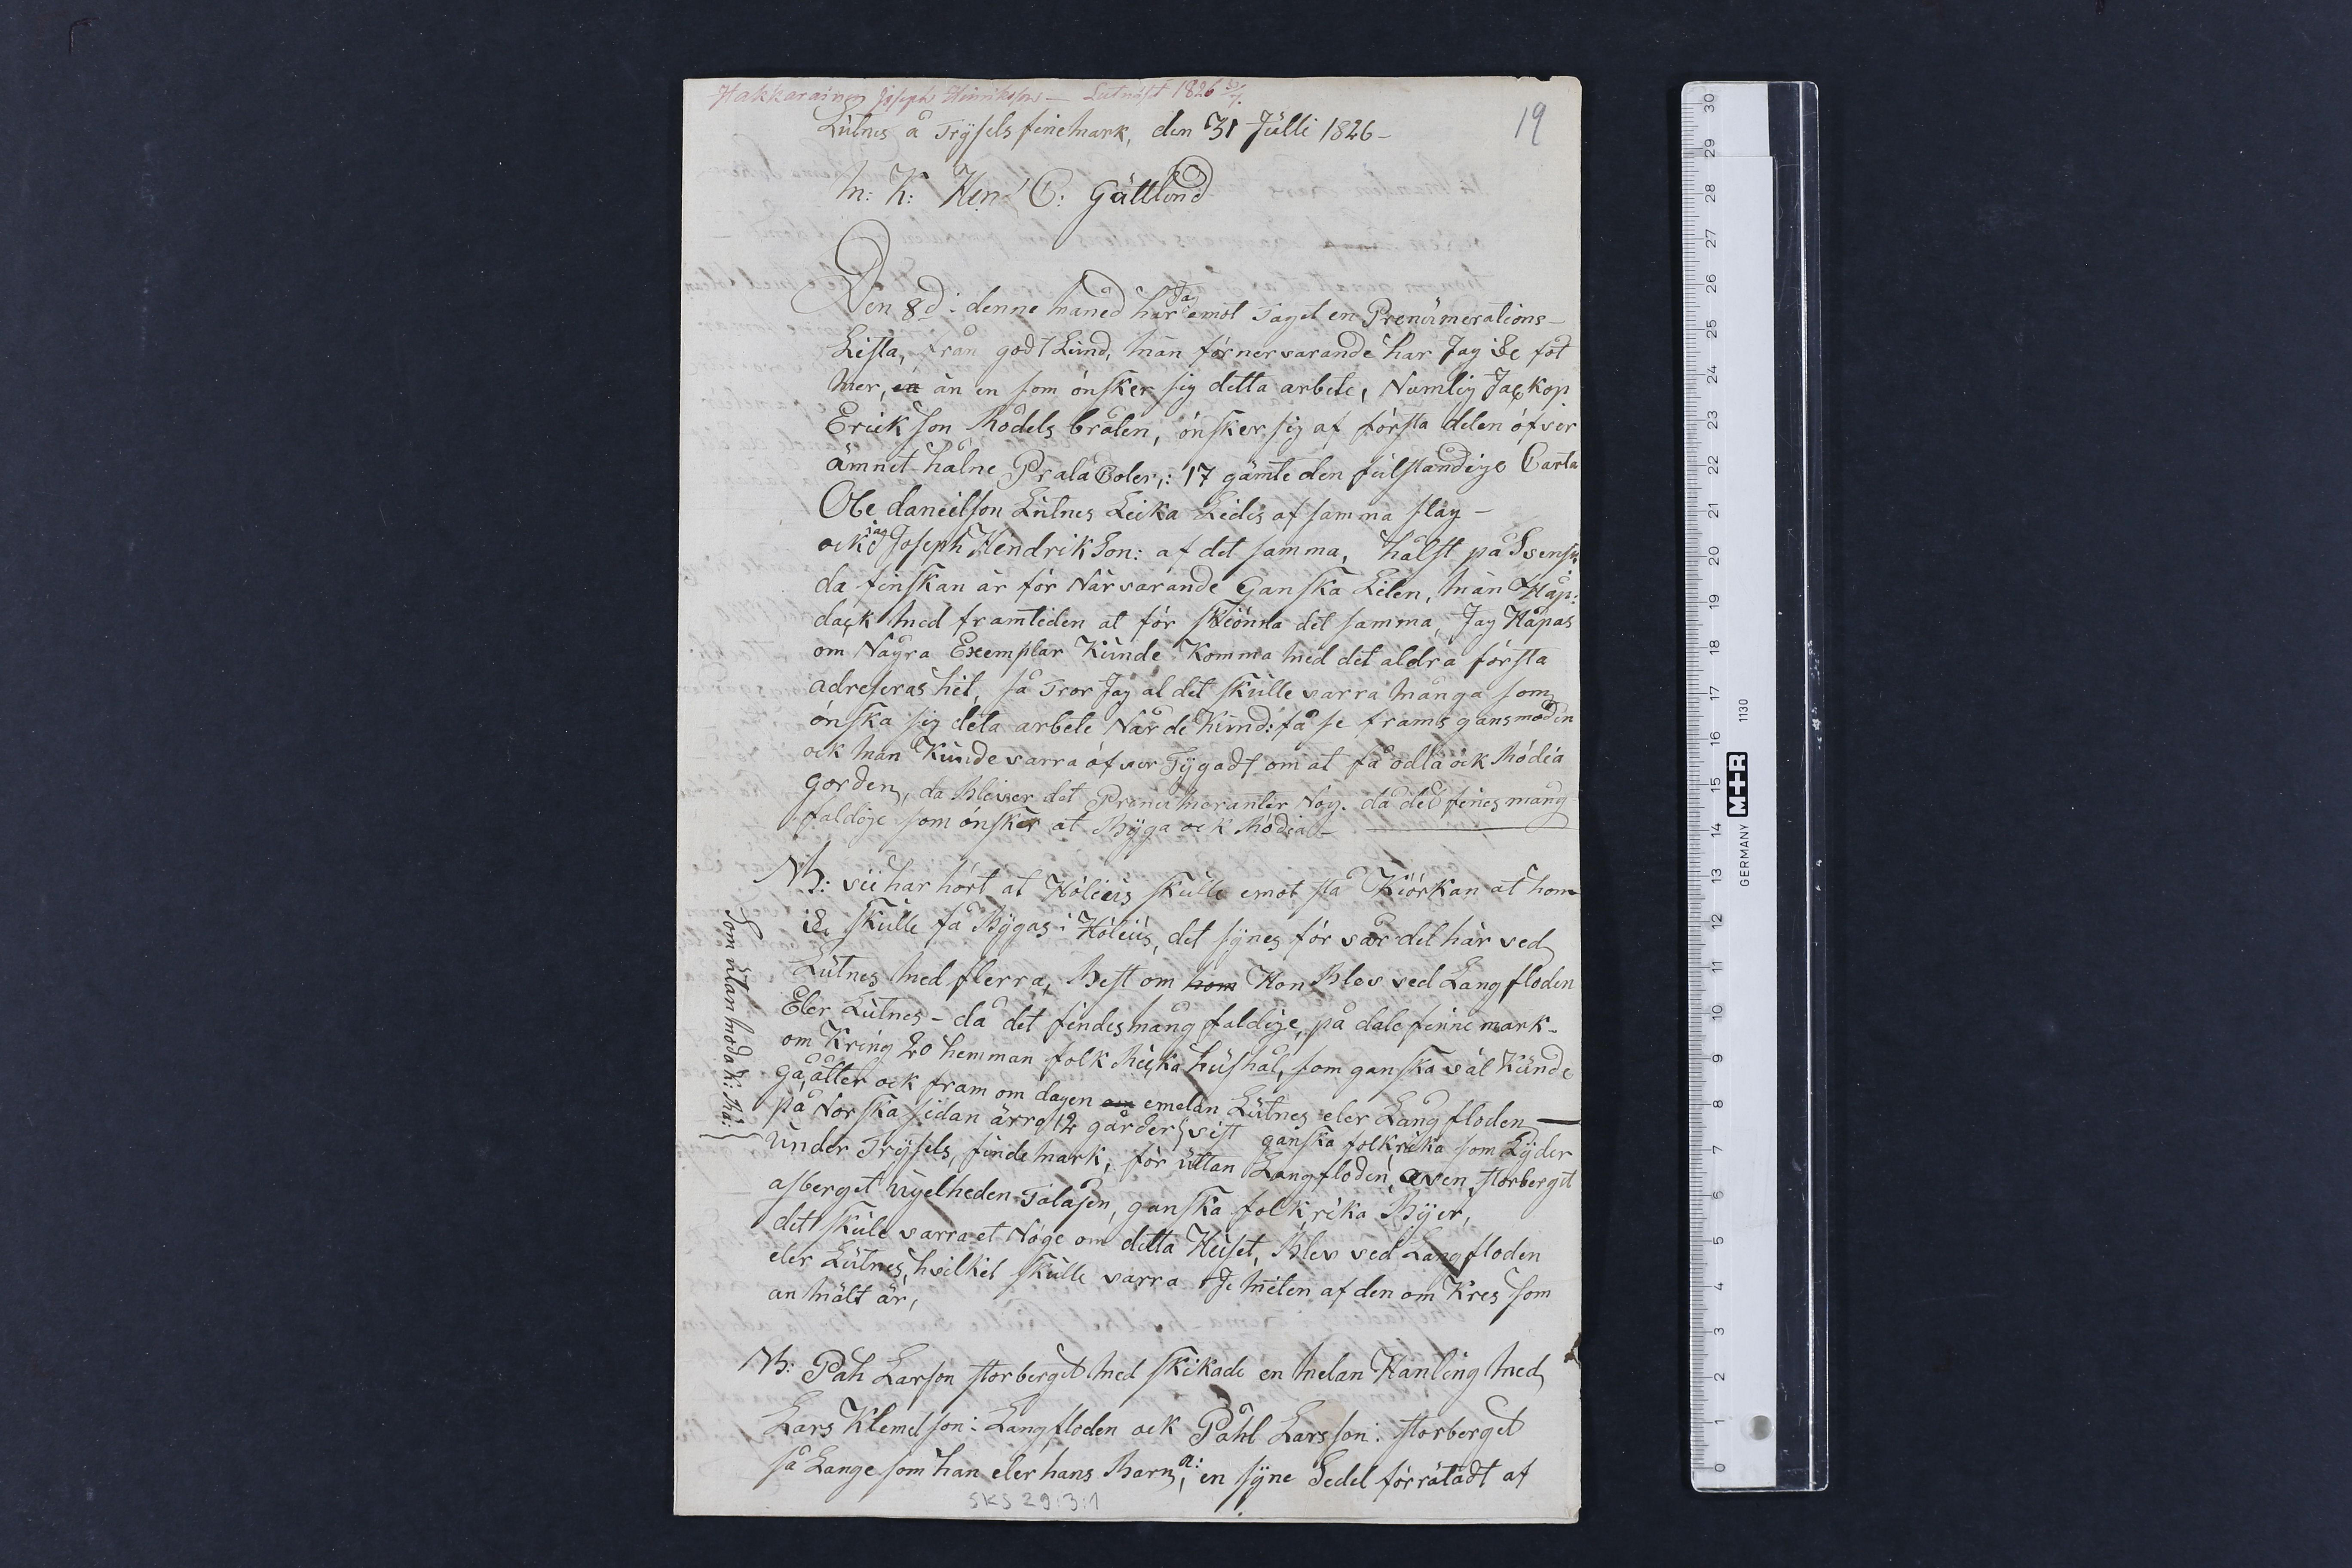 Hakkarainen Joseph Henrikson — Lutnäst 1826 31/7.
19
Lütnes å Trÿsels finemark, den 31 Jülli 1826 –
M: K: Hen! C: Gåttlünd
Den 8d: denne måned har Jag emot Taget en Prenümerations-
Lista, från godt Lünd, män för nervarande har Jag ike fåt
mer, en än en som önsker sig detta arbete, Namlig Jackop
Erickson Rådels bråten, önsker sig af första delen öfver
ämnet-hålne Prala Coler,: 17 gämte den fülstandige Carta
Ole danielson Lütnes Leika Ledis af samma slag –
ock jag Joseph Hendrikson: af det samma, hälst på Svensk
da finskan är för Närvarande Ganska Liten, män Håp:
dack med framtiden at för skiönna det samma, Jag Håpas
om Några Exemplar Künde Komma med det aldra första
adreseras hit, så Tror Jag at det skülle varra många som
önska sig deta arbete När de Künd: få se framgansmoden
ock man Künde varra öfver Tÿgadt om at få odla ock Rödia
gorden, da bliver det Prenümeranter Nog. då det fines mång
faldige som önsker at Bÿga ock Rödia –
NB: vii har hört at Höliäs skülle emot stå Kiörkan at hon
ike skülle få Bÿgas i Höliüs, det sÿnes för vår del här ved
Lütnes med flerra, Best om hom Hon Blev ved Langfloden
Eler Lütnes – då det findes mång faldige, på dale finnemark –
om Kring 20 hemman folk Rika hüshål, som ganska väl Künde
gå, åtter ock fram om dagen om emelan Lütnes eler Langfloden —
på Norska sidan ärro 12 gårder vist ganska folkrika som Lÿder
ünder Trÿsels, findemark, för üttan Langfloden, även, storberget
asberget ügelheden Tålåsen, ganska folkrika Bÿer,
det sküle varra et Nöge om detta Hüset, Blev ved Langfloden
eler Lütnes, hvilket skülle varra Je miten af den om Kres som
an mält är,
Som ütan moda K: Ra:
NB: Påh Larson storberget med skikade en melan Hanling med
Lars Klemetson: Langfloden ock Påhl Larsson: storberget
så Lange som han eler hans Barn, a: en sÿne Sedel förråtadt af
SKS 29:3:1
30
29
28
27
26
25
24
23
22
21
20
19
18
17
16
15
14
13
12
11
10
9
8
7
6
5
4
3
2
1
0
GERMANY M+R 1130